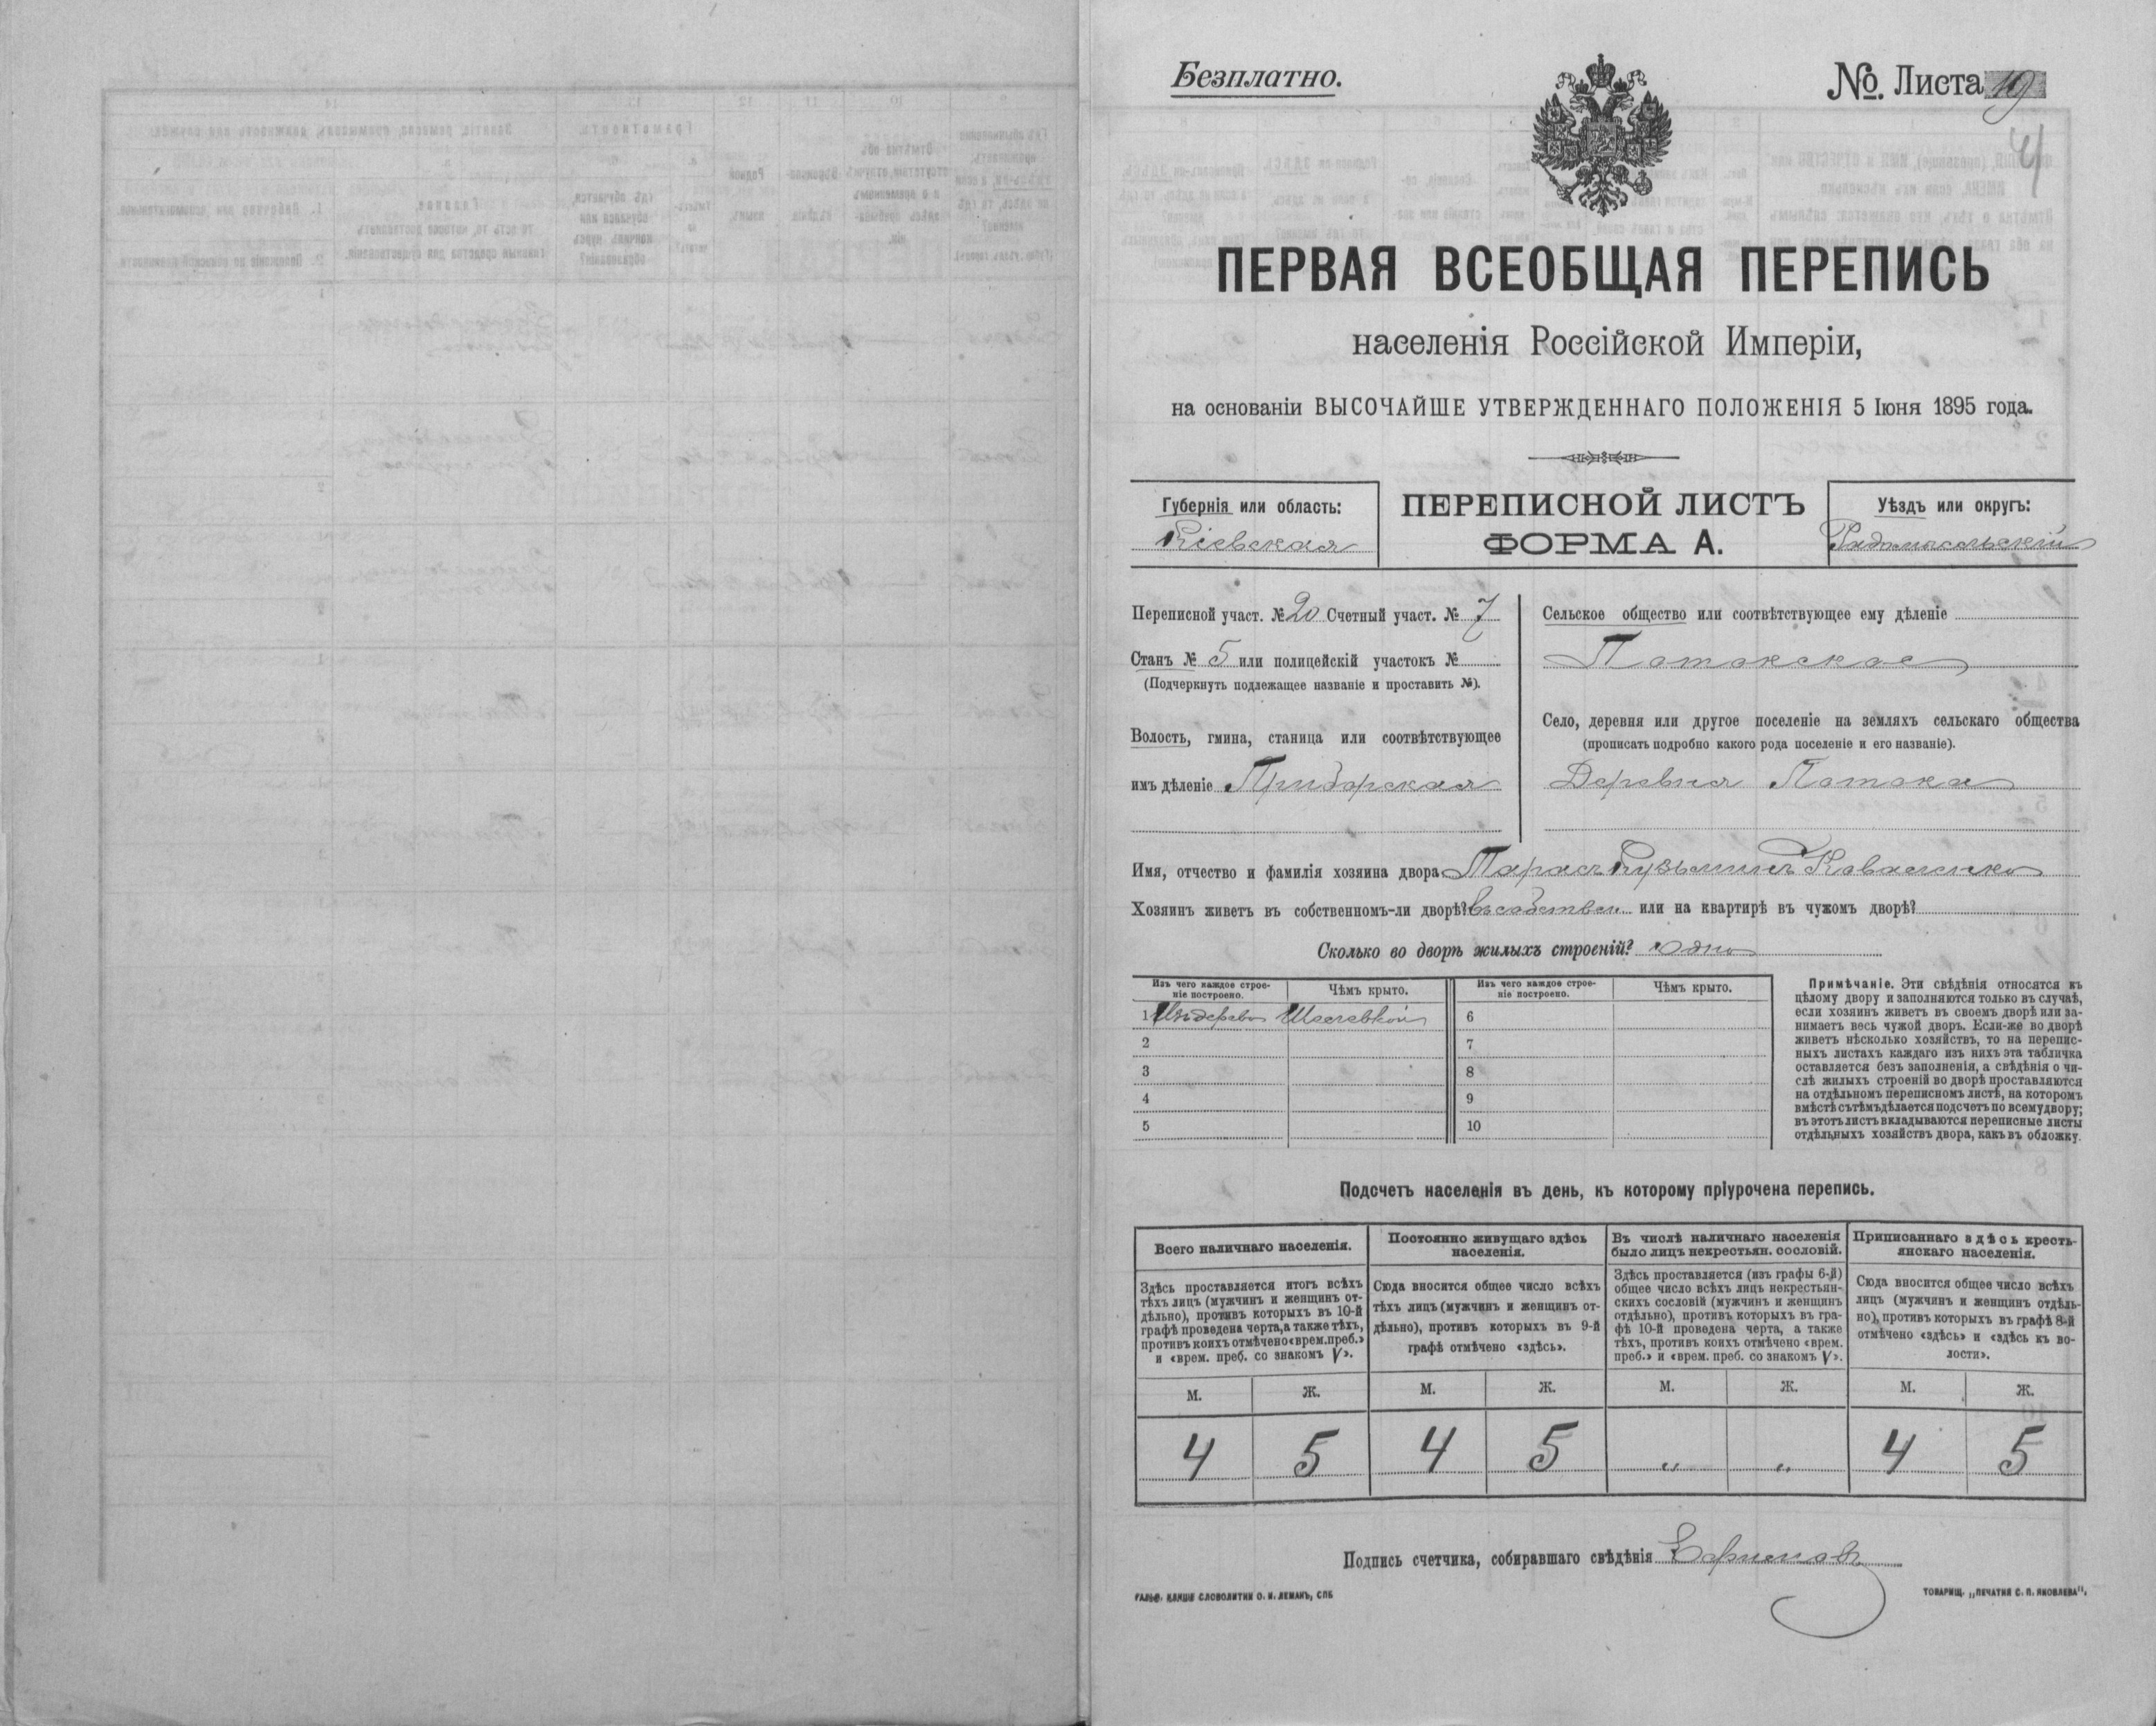 Безплатно.
№. Листа 19
4
ПЕРВАЯ ВСЕОБЩАЯ ПЕРЕПИСЬ
населенія Россійской Имперіи,
на основаніи ВЫСОЧАЙШЕ УТВЕРЖДЕННАГО ПОЛОЖЕНІЯ 5 Іюня 1895 года.
Губернія или область:
Кіевская
ПЕРЕПИСНОЙ ЛИСТЪ
ФОРМА А.
Уѣздъ или округъ:
Радомысльскій
Переписной участ. № 20 Счетный участ. № 7
Станъ № 5 или полицейскій участокъ №
(Подчеркнуть подлежащее названіе и проставить №).
Волость, гмина, станица или соотвѣтствующее
имъ дѣленіе Приборская
Сельское общество или соотвѣтствующее ему дѣленіе
Потокское
Село, деревня или другое поселеніе на земляхъ сельскаго общества
(прописать подробно какого рода поселеніе и его названіе).
Деревня Потоки
Имя, отчество и фамилія хозяина двора Тарасъ Кузьминъ Коваленко
Хозяинъ живетъ въ собственномъ-ли дворѣ? въ собствен. или на квартирѣ въ чужомъ дворѣ?
Сколько во дворѣ жилыхъ строеній? одно
Изъ чего каждое строе-
ніе построено.
Чѣмъ крыто.
Изъ чего каждое строе-
ніе построено.
Чѣмъ крыто.
1 Изъ дерева Шелевкой 6
2 7
3 8
4 9
5 10
Примѣчаніе. Эти свѣдѣнія относятся къ
цѣлому двору и заполняются только въ случаѣ,
если хозяинъ живетъ въ своемъ дворѣ или за-
нимаетъ весь чужой дворъ. Если-же во дворѣ
живетъ нѣсколько хозяйствъ, то на перепис-
ныхъ листахъ каждаго изъ нихъ эта табличка
оставляется безъ заполненія, а свѣдѣнія о чи-
слѣ жилыхъ строеній во дворѣ проставляются
на отдѣльномъ переписномъ листѣ, на которомъ
вмѣстѣ съ тѣмъ дѣлается подсчетъ по всему двору;
въ этотъ листъ вкладываются переписные листы
отдѣльныхъ хозяйствъ двора, какъ въ обложку.
Подсчетъ населенія въ день, къ которому пріурочена перепись.
Всего наличнаго населенія.
Здѣсь проставляется итогъ всѣхъ
тѣхъ лицъ (мужчинъ и женщинъ от-
дѣльно), противъ которыхъ въ 10-й
графѣ проведена черта, а также тѣхъ,
противъ коихъ отмѣчено «врем. преб.»
и «врем. преб. со знакомъ V».
Постоянно живущаго здѣсь
населенія.
Сюда вносится общее число всѣхъ
тѣхъ лицъ (мужчинъ и женщинъ от-
дѣльно), противъ которыхъ въ 9-й
графѣ отмѣчено «здѣсь».
Въ числѣ наличнаго населенія
было лицъ некрестьян. сословій.
Здѣсь проставляется (изъ графы 6-й)
общее число всѣхъ лицъ некрестьян-
скихъ сословій (мужчинъ и женщинъ
отдѣльно), противъ которыхъ въ гра-
фѣ 10-й проведена черта, а также
тѣхъ, противъ коихъ отмѣчено «врем.
преб.» и «врем. преб. со знакомъ V».
Приписаннаго здѣсь кресть-
янскаго населенія.
Сюда вносится общее число всѣхъ
лицъ (мужчинъ и женщинъ отдѣль-
но), противъ которыхъ въ графѣ 8-й
отмѣчено «здѣсь» и «здѣсь къ во-
лости».
М. Ж. М. Ж. М. Ж. М. Ж.
4 5 4 5 „ „ 4 5
Подпись счетчика, собиравшаго свѣдѣнія
ГАЛЬВ. КЛИШЕ СЛОВОЛИТНИ О. И. ЛЕМАНЪ, СПБ
ТОВАРИЩ. „ПЕЧАТНЯ С. П. ЯКОВЛЕВА".